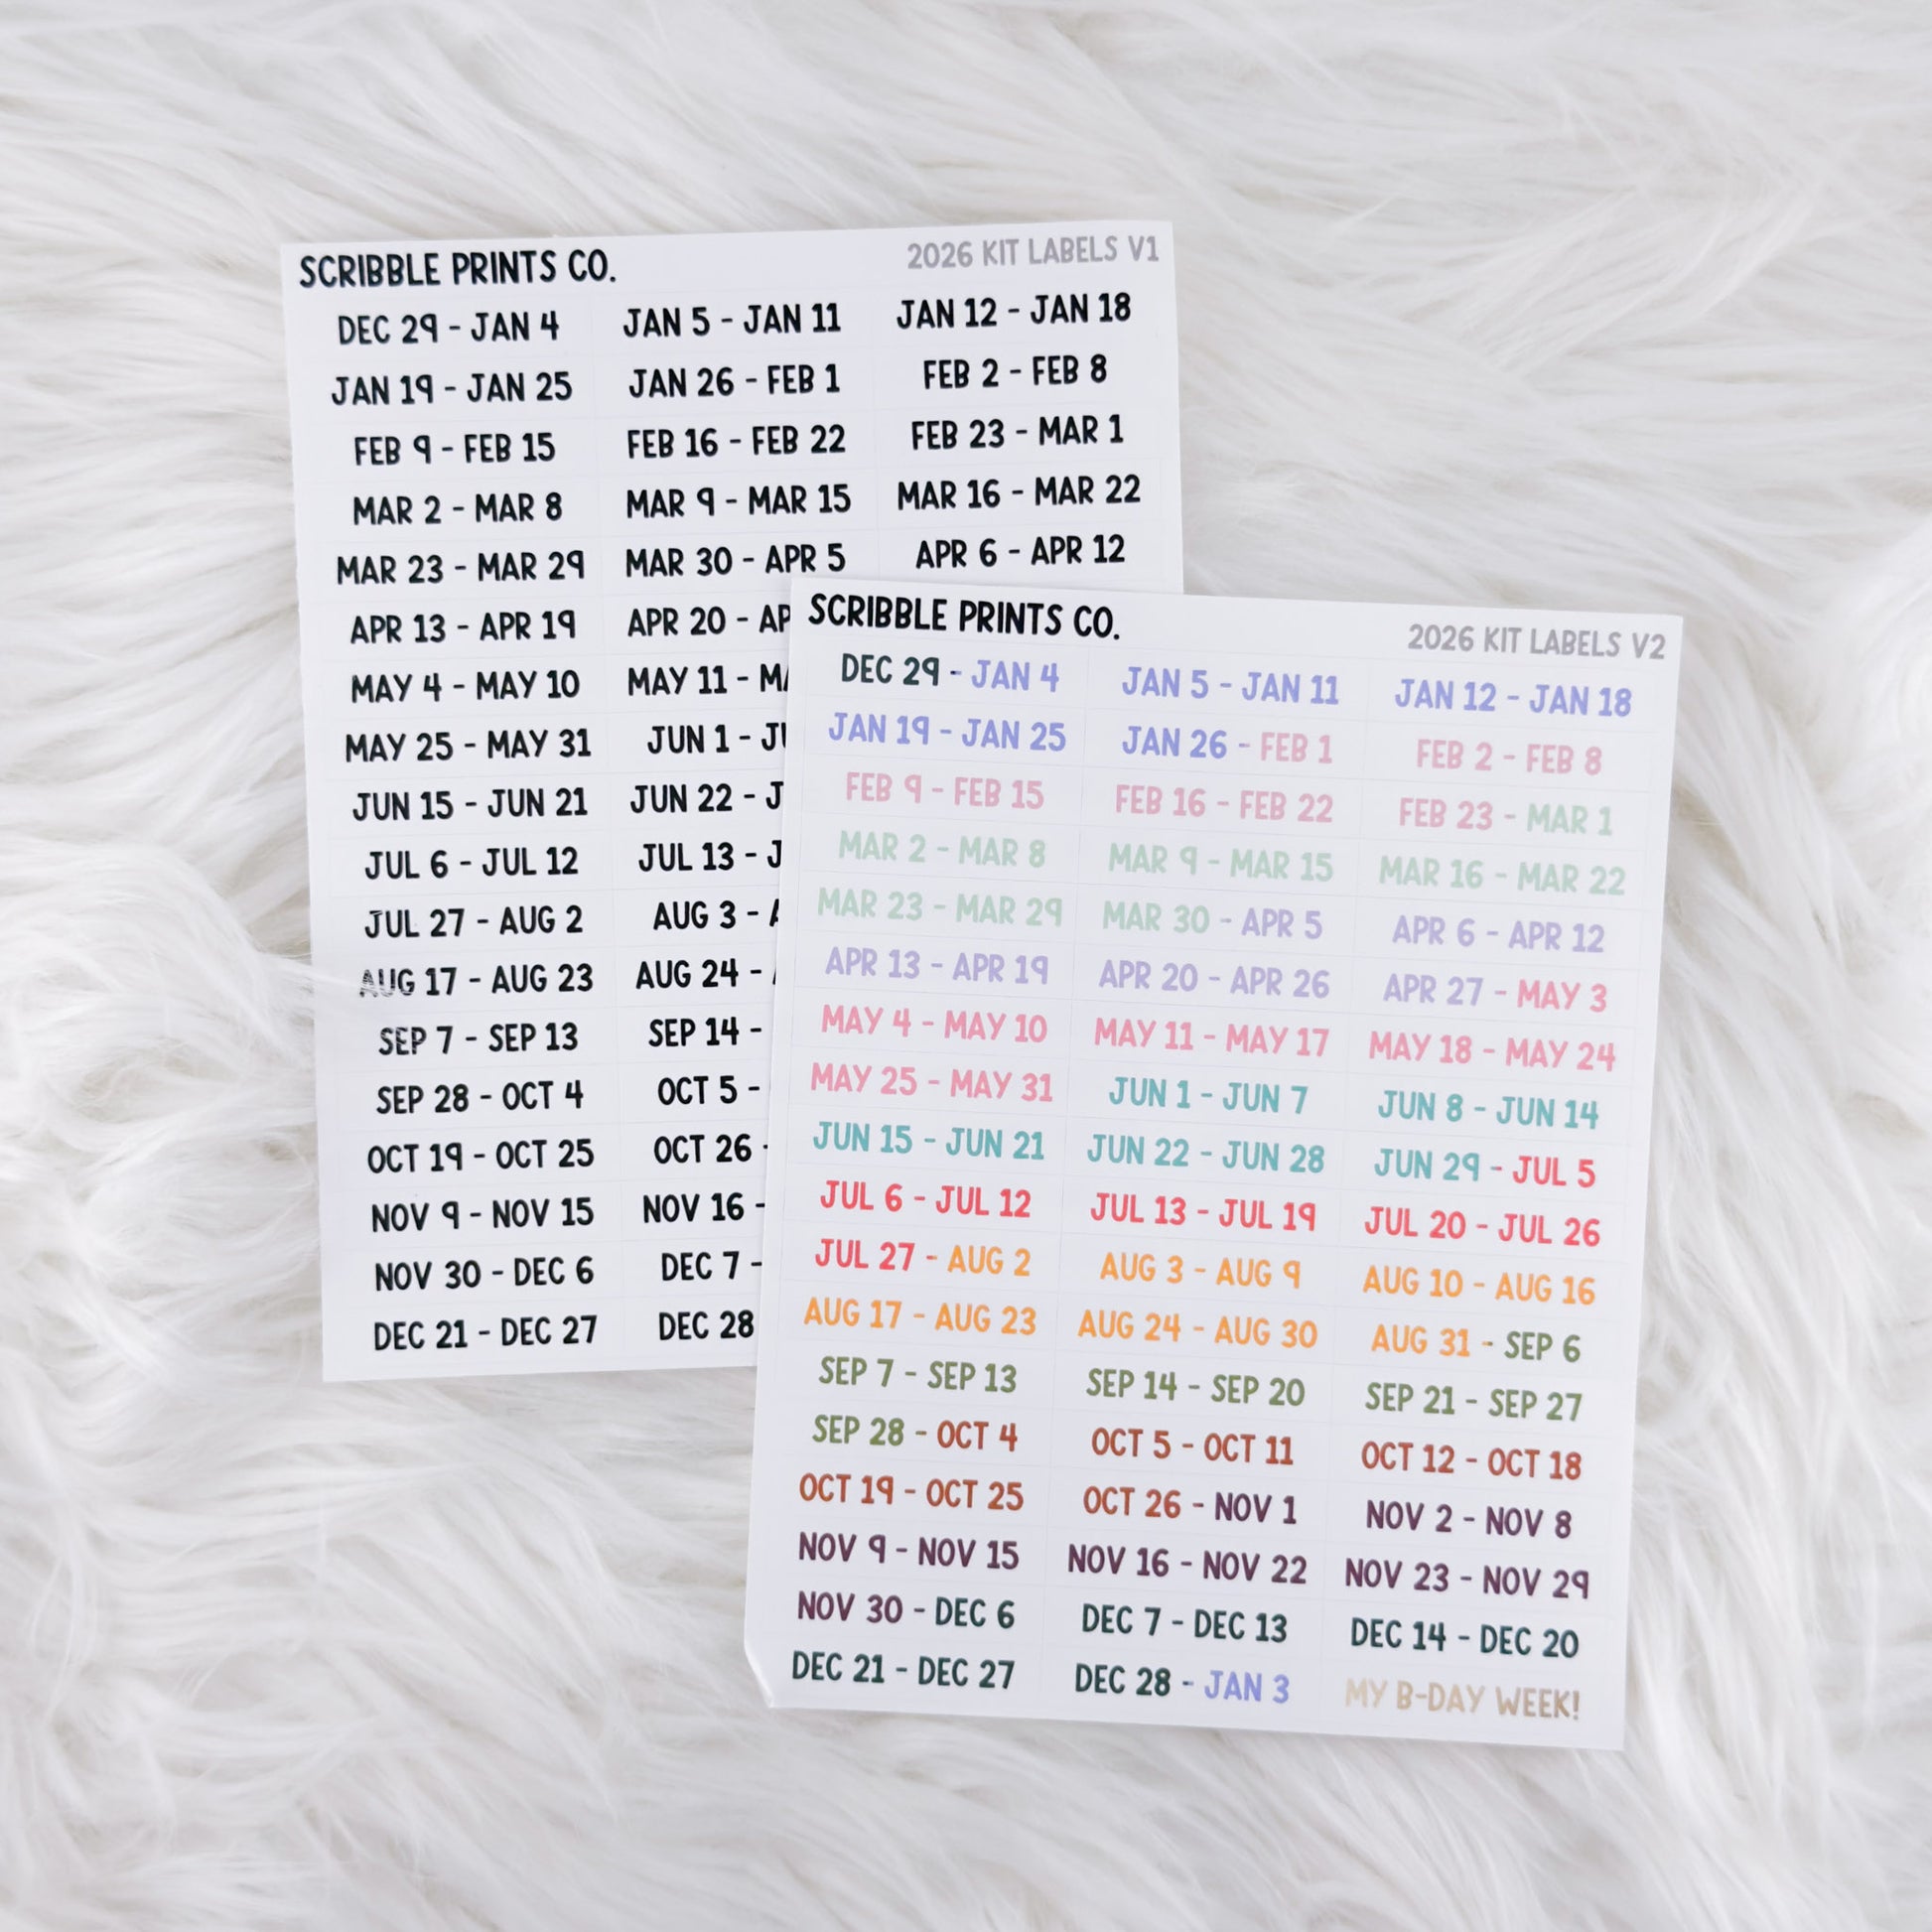 SCRIBBLE PRINTS CO. 2026 KIT LABELS V1
DEC 29 - JAN 4 JAN 5 - JAN 11 JAN 12 - JAN 18
JAN 19 - JAN 25 JAN 26 - FEB 1 FEB 2 - FEB 8
FEB 9 - FEB 15 FEB 16 - FEB 22 FEB 23 - MAR 1
MAR 2 - MAR 8 MAR 9 - MAR 15 MAR 16 - MAR 22
MAR 23 - MAR 29 MAR 30 - APR 5 APR 6 - APR 12
APR 13 - APR 19 APR 20 - AP
MAY 4 - MAY 10 MAY 11 -
MAY 25 - MAY 31 JUN 1 -
JUN 15 - JUN 21 JUN 22 -
JUL 6 - JUL 12 JUL 13 -
JUL 27 - AUG 2 AUG 3 -
AUG 17 - AUG 23 AUG 24 -
SEP 7 - SEP 13 SEP 14 -
SEP 28 - OCT 4 OCT 5 -
OCT 19 - OCT 25 OCT 26 -
NOV 9 - NOV 15 NOV 16 -
NOV 30 - DEC 6 DEC 7 -
DEC 21 - DEC 27 DEC 28
SCRIBBLE PRINTS CO. 2026 KIT LABELS V2
DEC 29 - JAN 4 JAN 5 - JAN 11 JAN 12 - JAN 18
JAN 19 - JAN 25 JAN 26 - FEB 1 FEB 2 - FEB 8
FEB 9 - FEB 15 FEB 16 - FEB 22 FEB 23 - MAR 1
MAR 2 - MAR 8 MAR 9 - MAR 15 MAR 16 - MAR 22
MAR 23 - MAR 29 MAR 30 - APR 5 APR 6 - APR 12
APR 13 - APR 19 APR 20 - APR 26 APR 27 - MAY 3
MAY 4 - MAY 10 MAY 11 - MAY 17 MAY 18 - MAY 24
MAY 25 - MAY 31 JUN 1 - JUN 7 JUN 8 - JUN 14
JUN 15 - JUN 21 JUN 22 - JUN 28 JUN 29 - JUL 5
JUL 6 - JUL 12 JUL 13 - JUL 19 JUL 20 - JUL 26
JUL 27 - AUG 2 AUG 3 - AUG 9 AUG 10 - AUG 16
AUG 17 - AUG 23 AUG 24 - AUG 30 AUG 31 - SEP 6
SEP 7 - SEP 13 SEP 14 - SEP 20 SEP 21 - SEP 27
SEP 28 - OCT 4 OCT 5 - OCT 11 OCT 12 - OCT 18
OCT 19 - OCT 25 OCT 26 - NOV 1 NOV 2 - NOV 8
NOV 9 - NOV 15 NOV 16 - NOV 22 NOV 23 - NOV 29
NOV 30 - DEC 6 DEC 7 - DEC 13 DEC 14 - DEC 20
DEC 21 - DEC 27 DEC 28 - JAN 3 MY B-DAY WEEK!